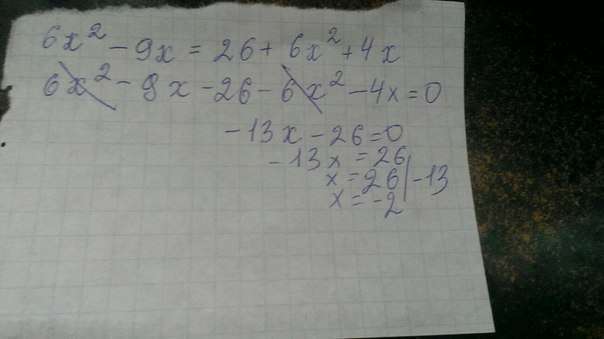 6x² - 9x = 26 + 6x² + 4x
6x² - 9x - 26 - 6x² - 4x = 0
-13x - 26 = 0
-13x = 26
x = 26 | -13
x = -2